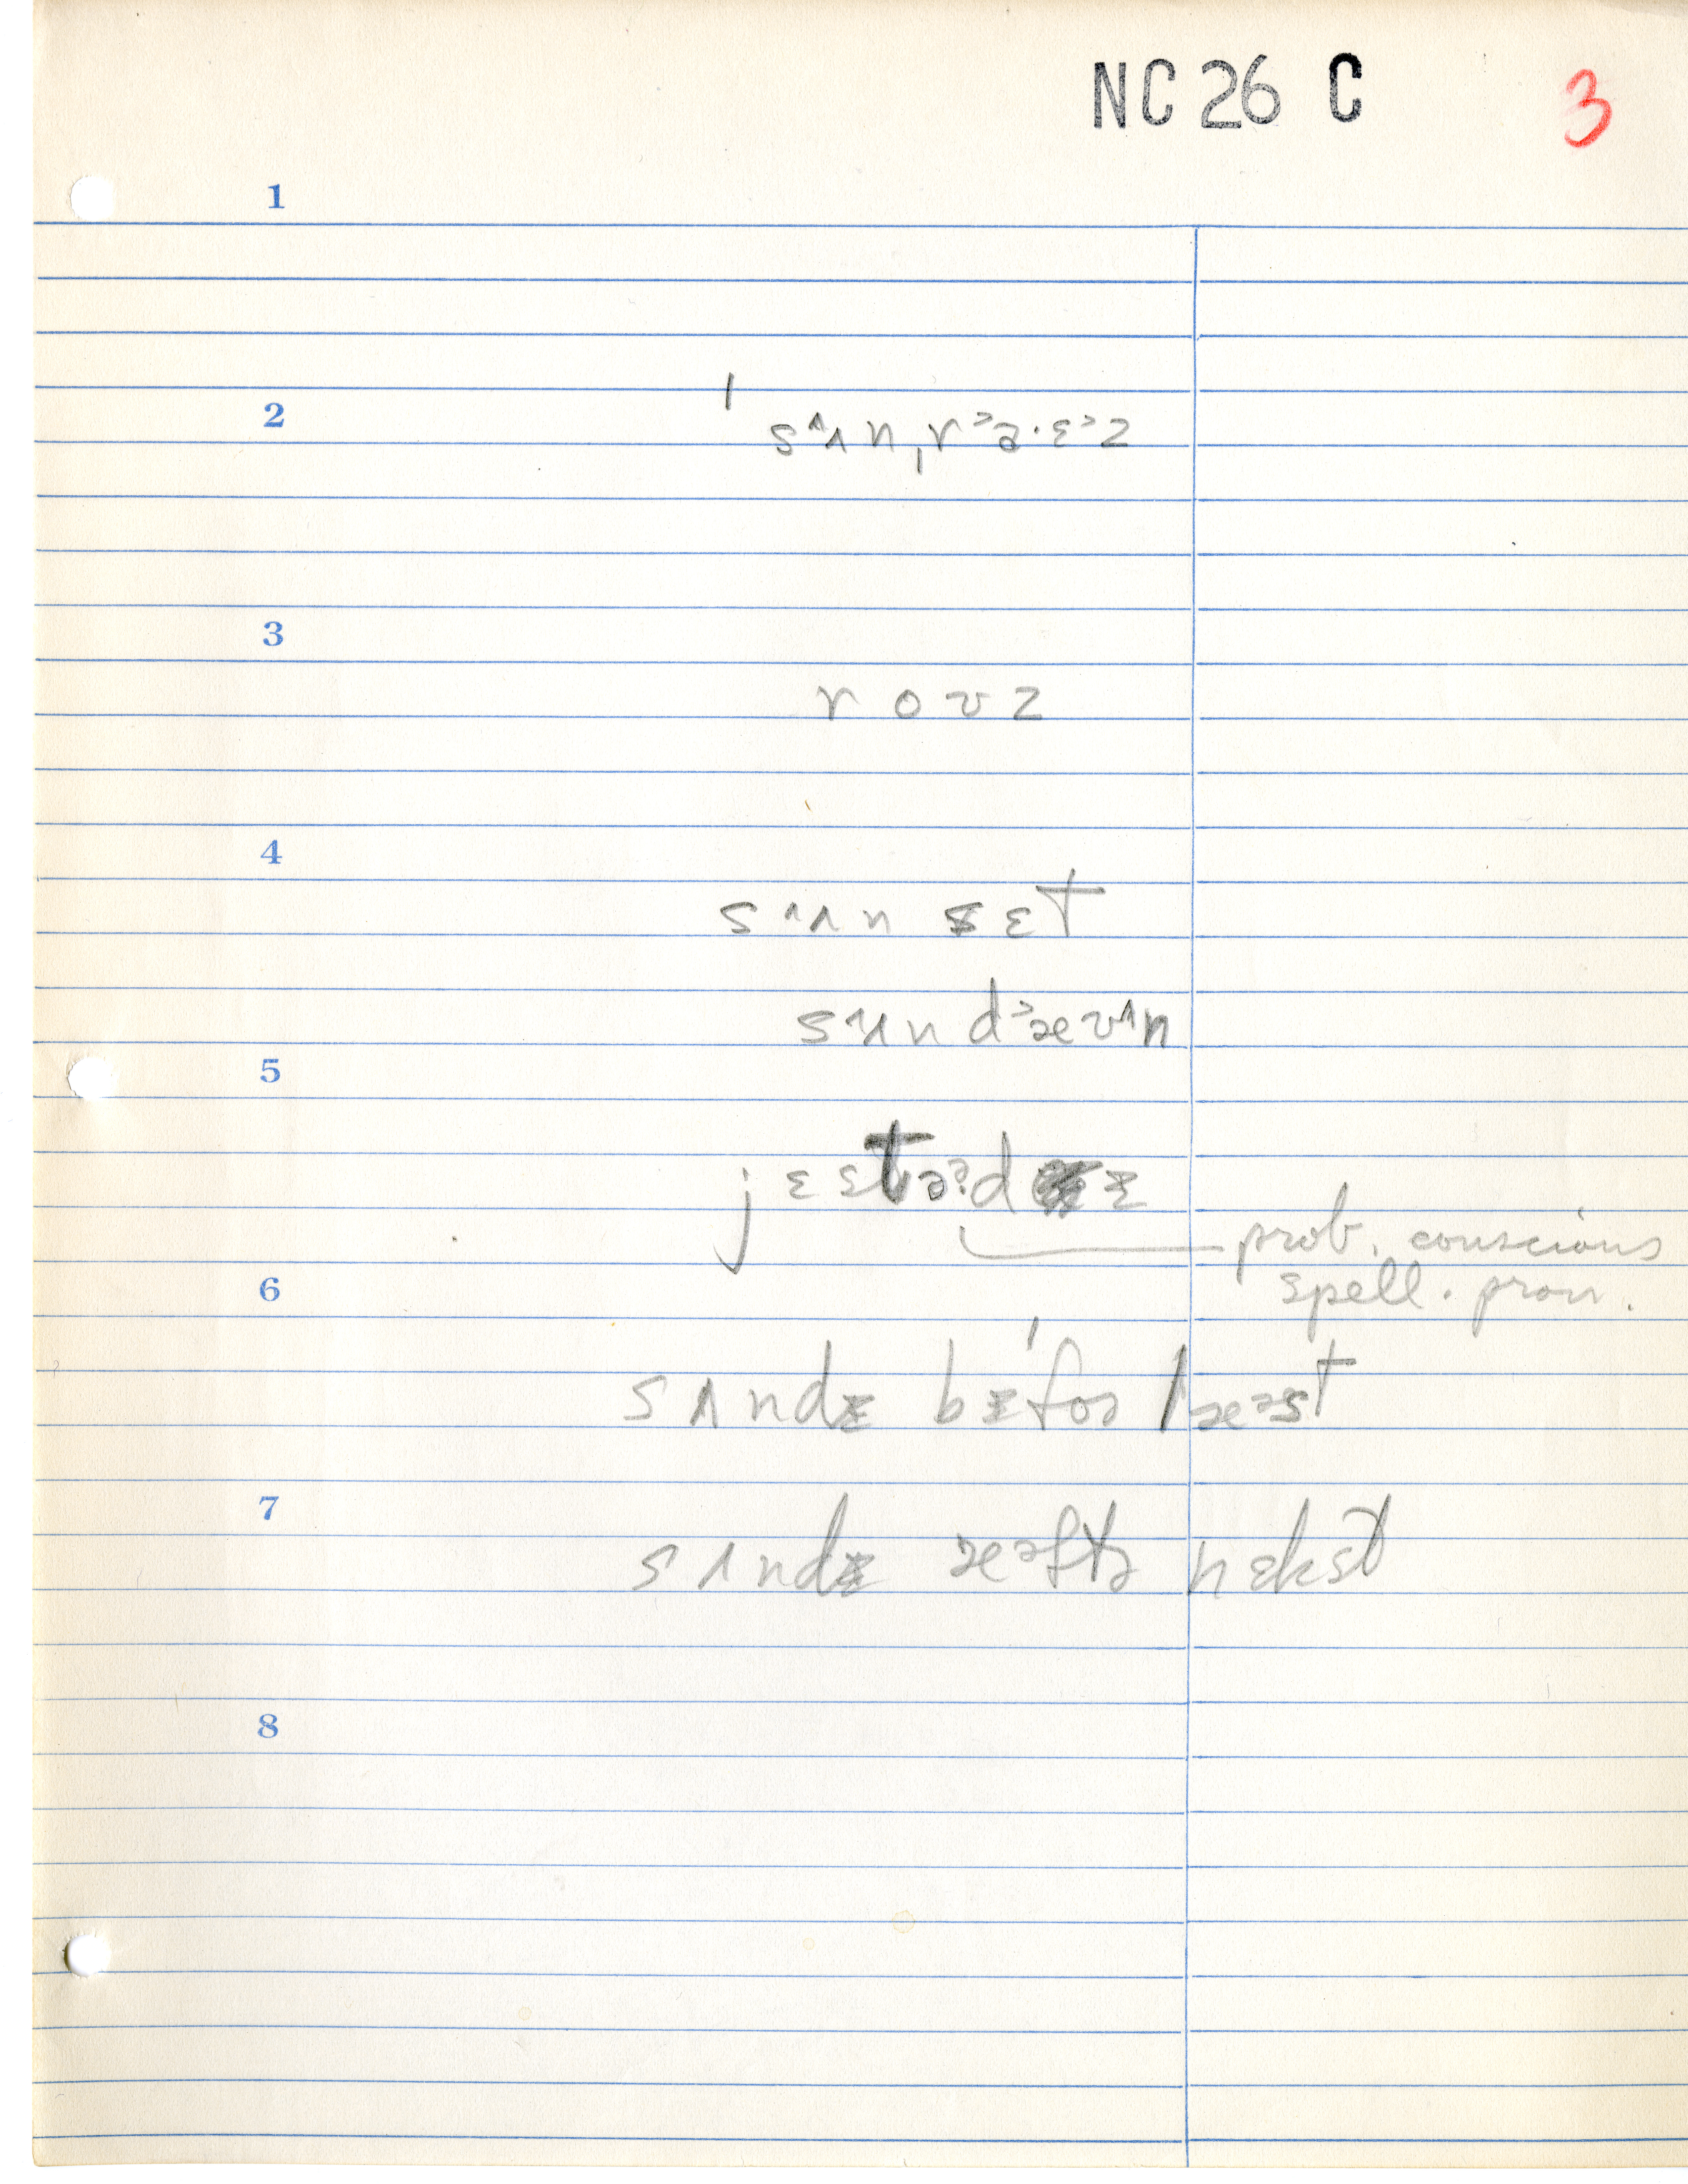 NC 26 C 3
1
2
ˈsᶺʌnˌrᵊa·ɛᵊz
3
rovz
4
sᶺʌn sɛt
sᶺʌn dᵊæʊᶺn
5
prob. conscious
spell. pron.
6
sʌndɨ bɨˈfoə læᵊst
7
sʌndɨ æᵊftə nɛkst
8